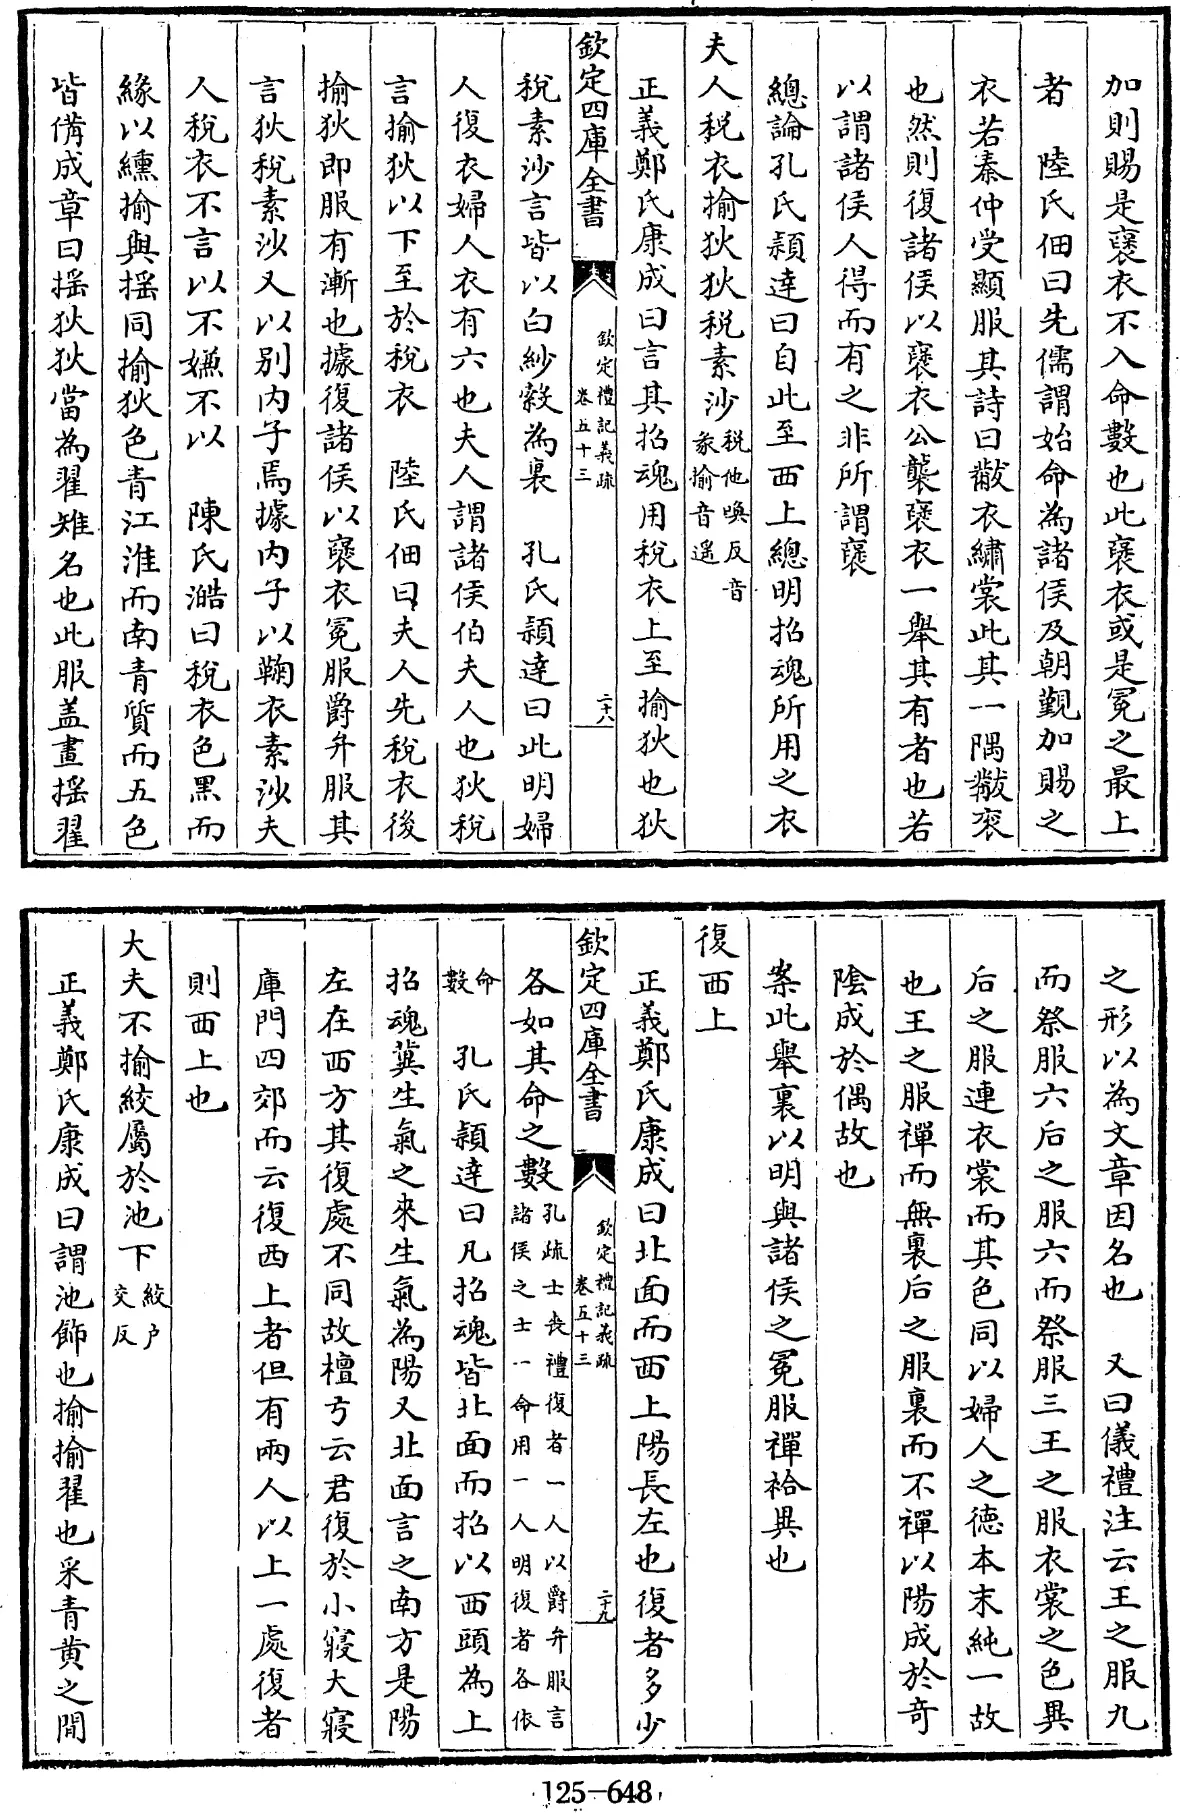 加則賜是襃衣不入命數也此襃衣或是冕之最上
者　陸氏佃曰先儒謂始命為諸侯及朝覲加賜之
衣若秦仲受顯服其詩曰黻衣繡裳此其一隅黻衮
也然則復諸侯以襃衣公襲襃衣一舉其有者也若
以謂諸侯人得而有之非所謂襃
總論孔氏穎達曰自此至西上總明招魂所用之衣
夫人稅衣揄狄狄稅素沙稅他喚反音彖揄音遥
正義鄭氏康成曰言其招魂用稅衣上至揄狄也狄
欽定四庫全書　欽定禮記義疏卷五十三　二十八
稅素沙言皆以白紗縠為裏　孔氏穎達曰此明婦
人復衣婦人衣有六也夫人謂諸侯伯夫人也狄稅
言揄狄以下至於稅衣　陸氏佃曰夫人先稅衣後
揄狄即服有漸也據復諸侯以襃衣冕服爵弁服其
言狄稅素沙又以别内子焉據内子以鞠衣素沙夫
人稅衣不言以不嫌不以　陳氏澔曰稅衣色黑而
緣以纁揄與揺同揄狄色青江淮而南青質而五色
皆備成章曰揺狄狄當為翟雉名也此服盖畫揺翟
之形以為文章因名也　又曰儀禮注云王之服九
而祭服六后之服六而祭服三王之服衣裳之色異
后之服連衣裳而其色同以婦人之德本末純一故
也王之服禪而無裏后之服裏而不禪以陽成於奇
陰成於偶故也
案此舉裏以明與諸侯之冕服禪袷異也
復西上
正義鄭氏康成曰北面而西上陽長左也復者多少
欽定四庫全書　欽定禮記義疏卷五十三　二十九
各如其命之數孔疏士喪禮復者一人以爵弁服言諸侯之士一命用一人明復者各依
命數　孔氏穎達曰凡招魂皆北面而招以西頭為上
招魂冀生氣之來生氣為陽又北面言之南方是陽
左在西方其復處不同故檀弓云君復於小寢大寢
庫門四郊而云復西上者但有兩人以上一處復者
則西上也
大夫不揄絞屬於池下絞户交反
正義鄭氏康成曰謂池飾也揄揄翟也采青黄之間
125-648